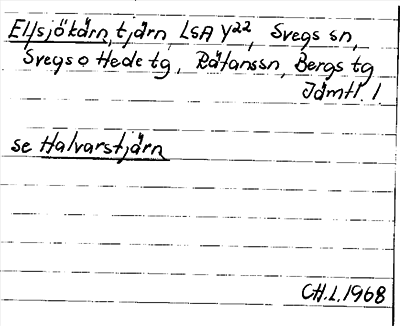 Ellsjökärn, tjärn, LSA Y22, Svegs sn,
Svegs o Hede tg, Rätanssn, Bergs tg
Jämtl. l
se Halvarstjärn
CH.L.1968